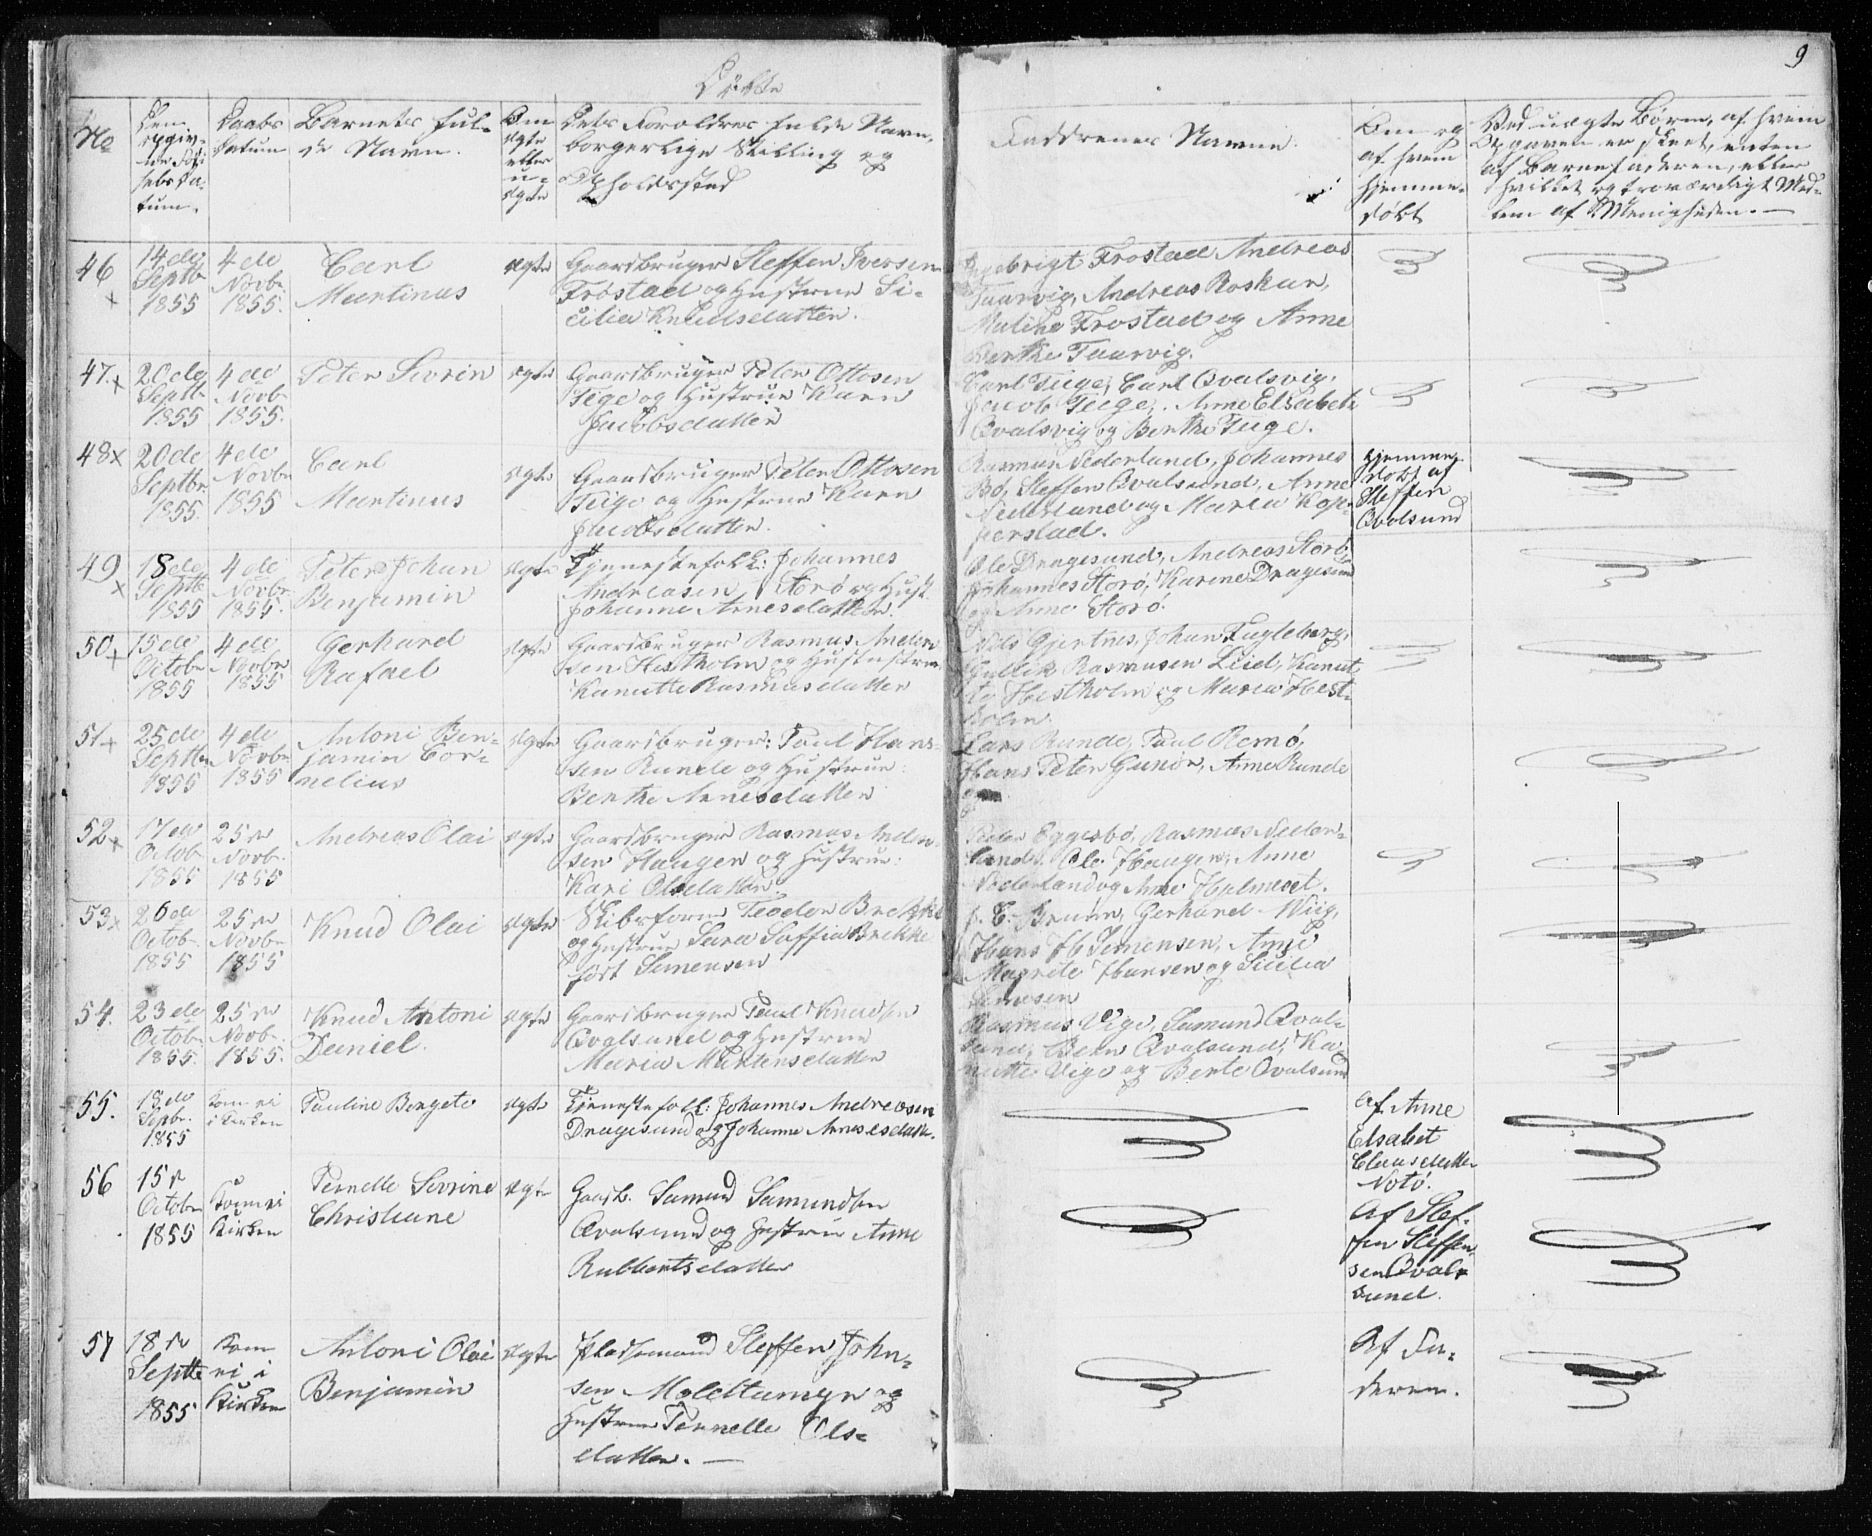 9
Døbte
No
Den opgiv-
ne Fød-
sels Da-
tum.
Daabs
Datum
Barnets ful-
de Navn.
Om
ægte
eller
u-
ægte
Dets Forældres fulde Navn,
borgerlige Stilling og
Opholdssted
Faddrenes Navne.
Om og
af hvem
hjemme-
døbt
Ved uægte Børn, af hvem
Opgaven er skeet, enten
af Barnefaderen, eller
hvilket og troværdigt Med-
lem af Menigheden. —
46
14de
Septbr
1855
4de
Novbr
1855.
Carl
Martinus
ægte
Gaardbruger Steffen Iversen
Frøstad og Hustrue Si-
cilia Knudsdatter.
Ingebrigt Frostad Andreas
Taarvig, Andreas Roskar,
Maline Frostad og Anne
Berthe Taarvig.
47.
20de
Septb
1855
4de
Novb
1855.
Peter Sivrin
ægte
Gaardbruger Peder Ottosen
Teige og Hustrue Karn
Jacobsdatter
Carl Teige, Carl Qvalsvig,
Jacob Teige, Anne Elsabeth
Qvalsvig og Berthe Teige.
48
20de
Septbr.
1855.
4de
Novbr
1855
Carl
Martinus
ægte
Gaardbruger Peter Ottosen
Teige og Hustrue Karn
Jacobsdatter.
Rasmus Nederland, Johannes
Bø, Steffen Qvalsund, Anne
Nederland og Maria Kop-
perstad.
Hjemme-
døbt af
Steffen
Qvalsund
49
18de
Septb
1855
4de
Novbr
1855.
Peter Johan
Benjamin
ægte
Tjenestefolk: Johannes
Andreasen Storø og Hust.
Johanne Arnesdatter
Ole Dragesund, Andreas Storø,
Johannes Storø, Karine Dragesund
og Anne Storø.
50
15de
Octobr
1855
4de
Novbr
1855
Gerhard
Rafael
ægte
Gaardbruger Rasmus Ander-
sen Hestholm og Hustrue
Kanutte Rasmusdatter
Nils Gjertnes, Johan Fugleberg,
Gullik Rasmusen Leid, Kanut-
te Hestholm og Maria Hest-
holm.
51
25de
Septbr
1855
4de
Novbr
1855
Antoni Ben-
jamin Cor-
nelius
ægte
Gaardbruger: Poul Hans-
sen Runde og Hustrue:
Berthe Arnesdatter
Lars Runde, Paul Remø,
Hans Peter Gurør, Anne Runde
og
52
17de
Octob
1855
25de
Novb.
1855
Andreas Olai
ægte
Gaardbruger Rasmus Ander-
sen Haugen og Hustrue:
Kari Olsdatter
Peder Eggesbø, Rasmus Neder-
land, Ole Haugen, Anne
Nederland og Anne Hjelmeset.
53
26de
Octob
1855
25de
Novbr
1855
Knud Olai
ægte
Skibsfører Teodor Brekke
og Hustrue Sara Soffia Brekke
født Semensen
J. C. Bruun, Gerhard Wiig,
Hans H Semensen, Anne
Magrete Hansen og Sicilia
Semesen
54.
23de
Octobr
1855.
25de
Novb.
1855.
Knud Antoni
Daniel.
ægte
Gaardbruger Paul Knudsen
Qvalsund og Hustrue
Maria Martensdatter
Rasmus Vige, Samund Qval-
sund, Bern Qvalsund, Ka-
nutte Vige og Berte Qvalsund
55.
18de
Sepbr.
1855
Kom ei
i Kirken
Pauline Bergete
ægte
Tjenestefolk: Johannes Andreasen
Dragesund og Johanne Arnesdatter.
Af Anne
Elsabet
Clausdatter
Notø.
56
15de
Octobr
1855
Kom ei i
Kirken
Pernelle Sivrine
Christiane
ægte
Gaardb. Samund Samundsen
Qvalsund og Hustrue Anne
Rubbertsdatter
Af Stef-
fen Steffen-
sen Qval-
sund.
57
18de
Septbr
1855
Kom
ei i
Kirken
Antoni Olai
Benjamin
ægte
Pladsemand Steffen John-
sen Moldtumyr og
Hustrue Pernelle Ols-
datter. —
Af Fa-
deren.